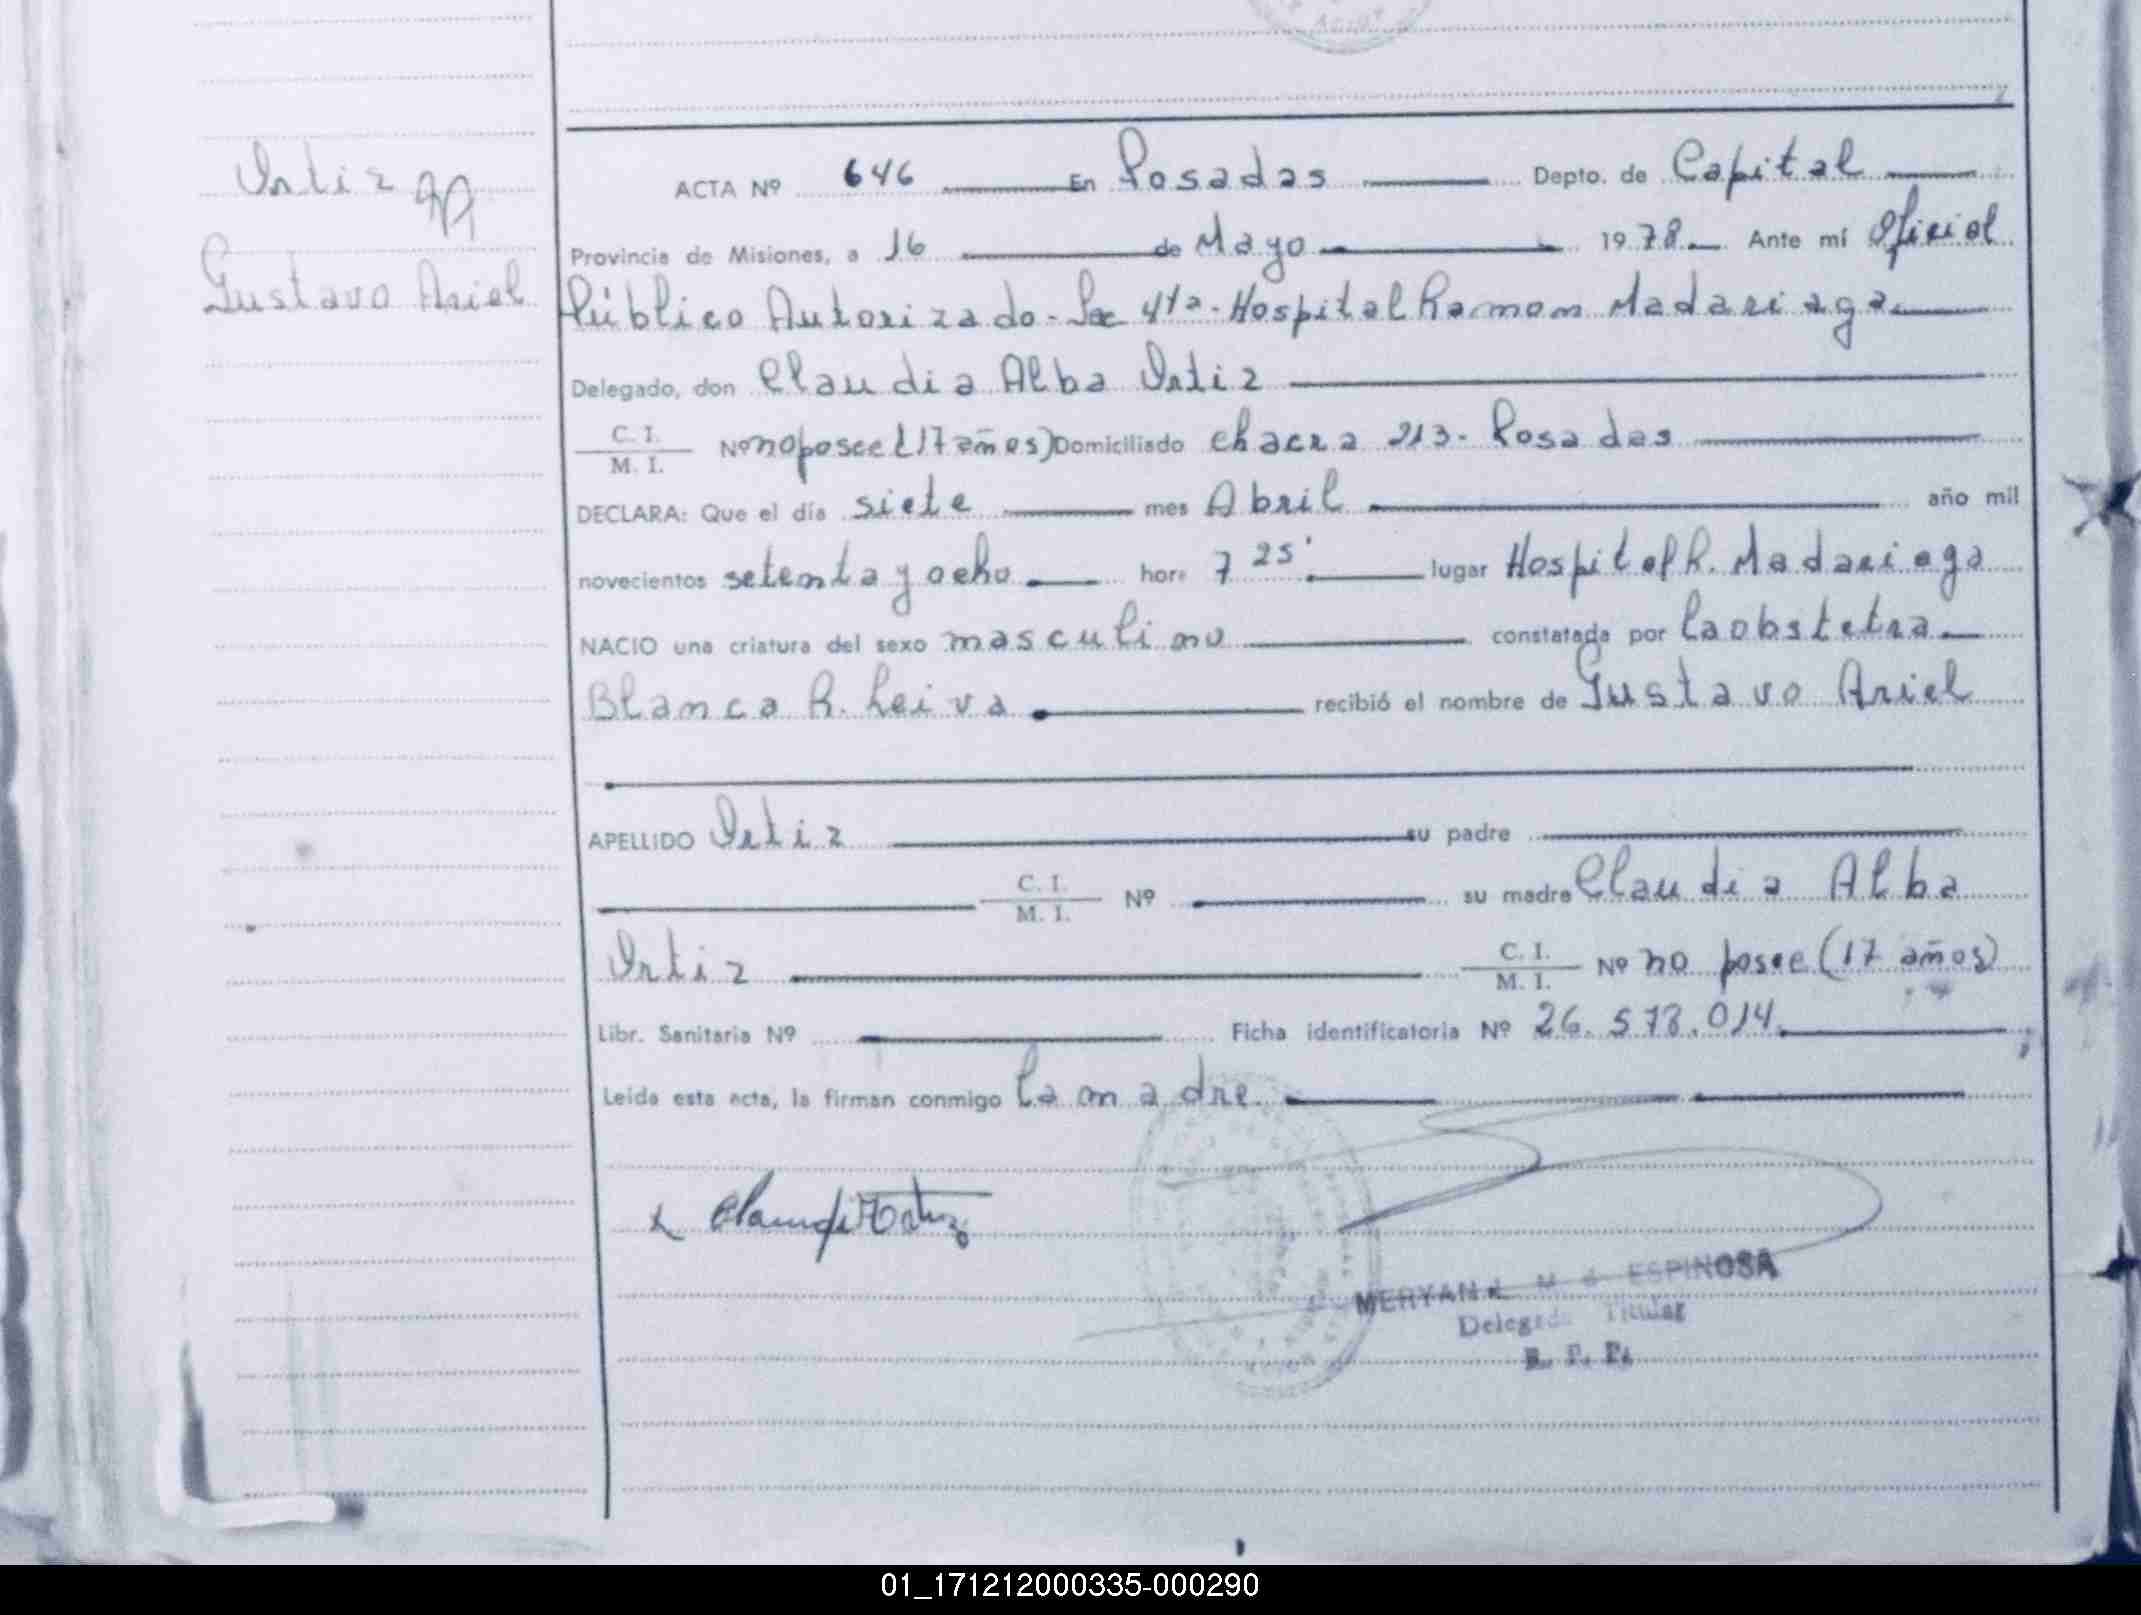 Ortiz
Gustavo Ariel
ACTA Nº 646 En Posadas Depto. de Capital
Provincia de Misiones, a 16 de Mayo 1978 Ante mí Oficial
Público Autorizado - Sec 4ta - Hospital Ramon Madariaga
Delegado, don Claudia Alba Ortiz
C. I.
M. I.
Nº no posee (17 años) Domiciliado chacra 213 - Posadas
DECLARA: Que el día siete mes Abril año mil
novecientos setenta y ocho hora 7 25' lugar Hospital R. Madariaga
NACIO una criatura del sexo masculino constatada por la obstetra
Blanca R. Leiva recibió el nombre de Gustavo Ariel
APELLIDO Ortiz su padre
C. I.
M. I.
Nº su madre Claudia Alba
Ortiz
C. I.
M. I.
Nº no posee (17 años)
Libr. Sanitaria Nº Ficha identificatoria Nº 26.573.014
Leída esta acta, la firman conmigo la madre
MERYAN ESPINOSA
Delegada Titular
R. P. P.
01_171212000335-000290